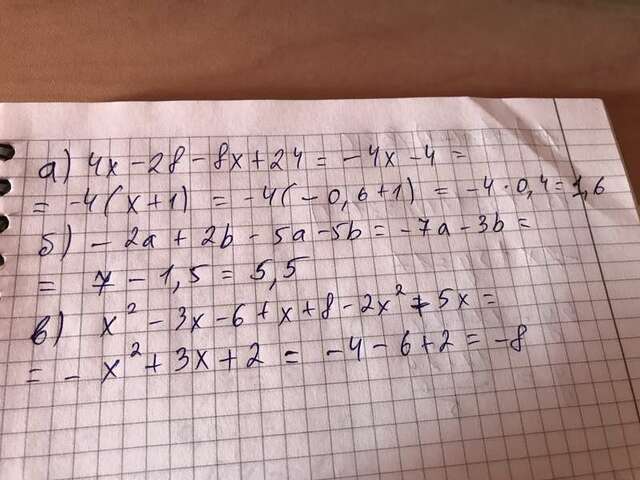 а) 4x - 28 - 8x + 24 = -4x - 4 =
= -4(x + 1) = -4(-0,6 + 1) = -4 · 0,4 = 1,6
б) - 2a + 2b - 5a - 5b = -7a - 3b =
= 7 - 1,5 = 5,5
в) x² - 3x - 6 + x + 8 - 2x² + 5x =
= - x² + 3x + 2 = -4 - 6 + 2 = -8